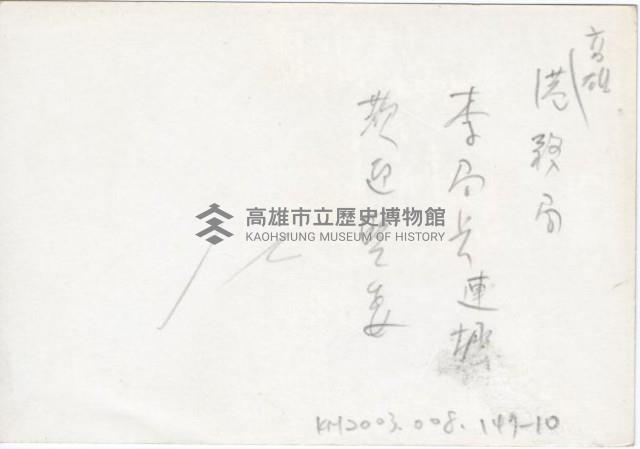 高雄
港務局
李局長連墀
歡迎
高雄市立歷史博物館
KAOHSIUNG MUSEUM OF HISTORY
KH2003.008.149-10